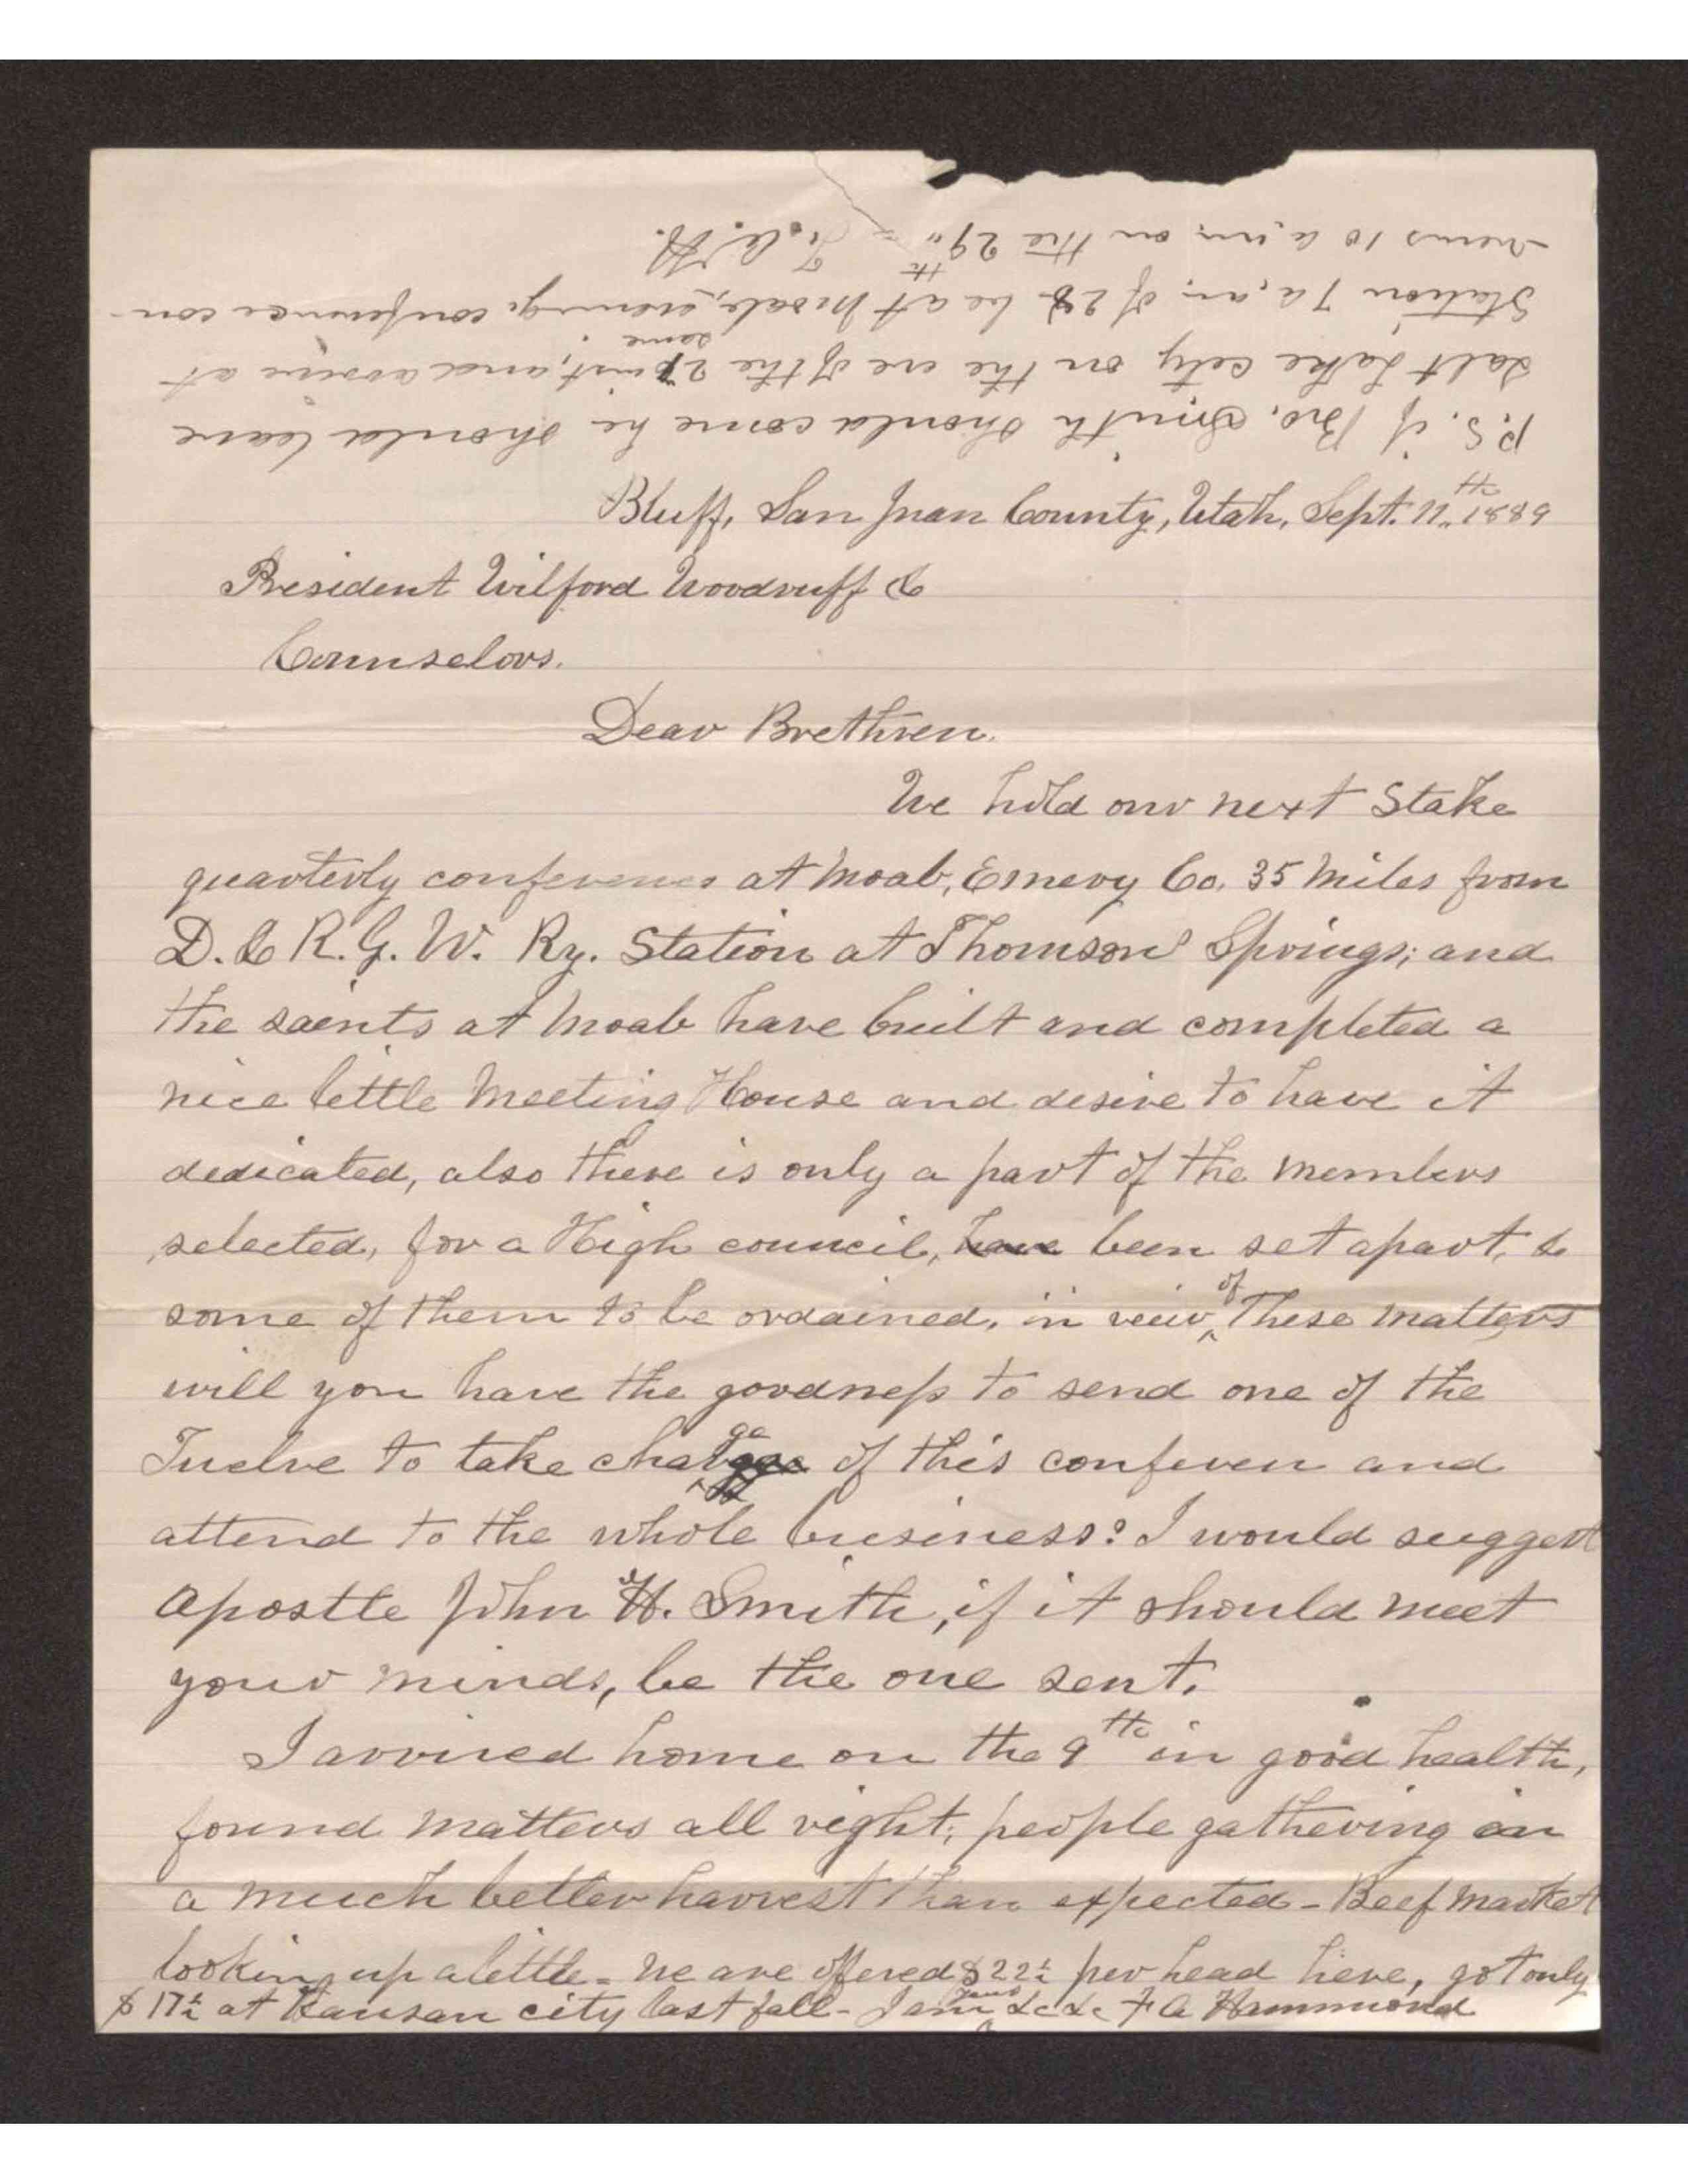 Bluff, San Juan County, Utah, Sept. 11th 1889
President Wilford Woodruff &
Counselors.
Dear Brethren.
We hold our next Stake
quarterly conference at Moab, Emery Co. 35 Miles from
D. & R. G. W. Ry. Station at Thomson Springs; and
the saints at Moab have built and completed a
nice little Meeting House and desire to have it
dedicated, also there is only a part of the members
selected, for a High council, have been set apart, &
some of them to be ordained, in veiw of These matters
will you have the goodness to send one of the
Twelve to take charge of this conferen and
attend to the whole business? I would suggest
Apostle John H. Smith, if it should meet
your minds, be the one sent.
I arrived home on the 9th in good health,
found matters all right; people gathering in
a much better harvest than expected - Beef market
looking up a little - we are offered $22½ per head here, got only
$17½ at Kansan city last fall - I am yours &c &c F A Hammond
P.S. if Bro. Smith should come he should leave
Salt Lake city on the eve of the 27 inst, and arrive at
Station 7 a.m. of 28th be at Moab, same evening, conference con-
venes 10 a.m. on the 29th - F. A. H.